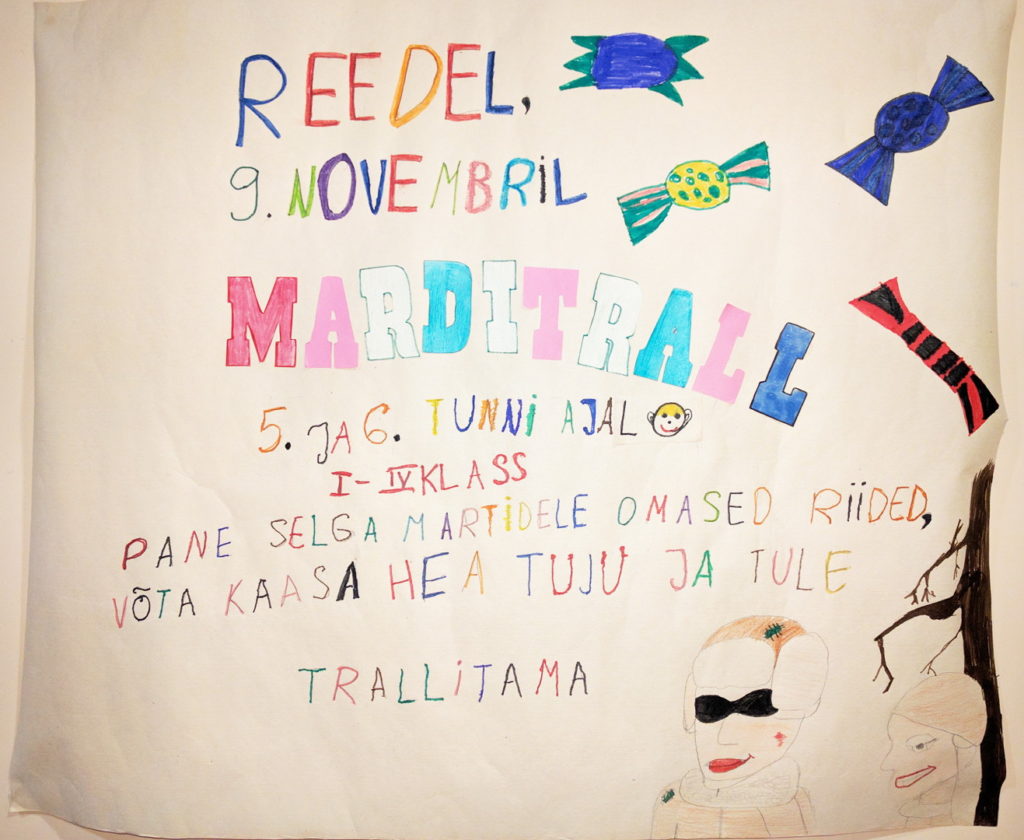 REEDEL,
9. NOVEMBRIL
MARDITRALL
5. JA 6. TUNNI AJAL
I-IV KLASS
PANE SELGA MARTIDELE OMASED RIIDED,
VÕTA KAASA HEA TUJU JA TULE
TRALLITAMA